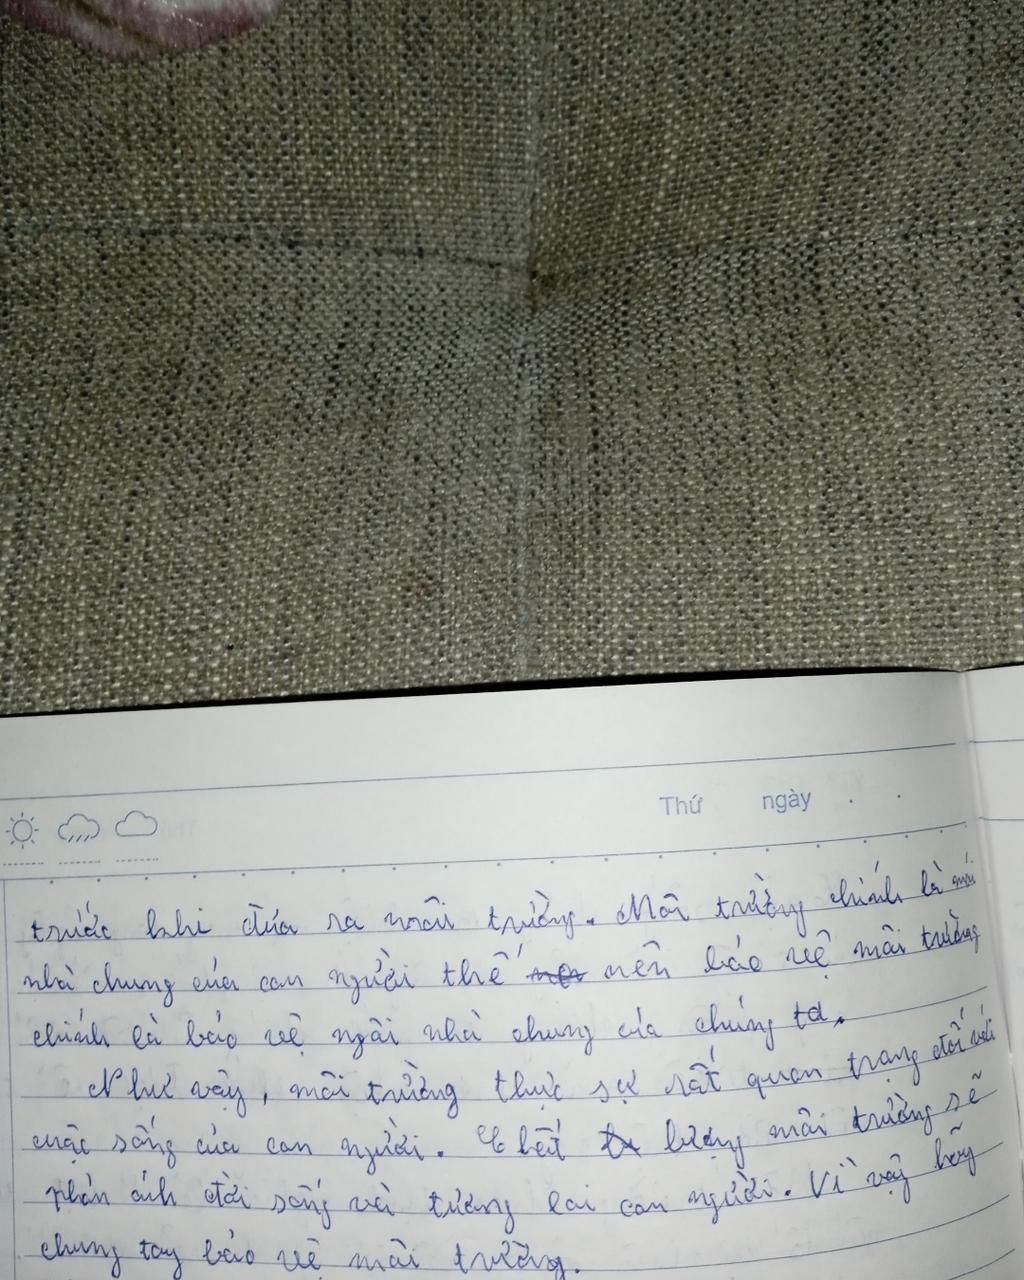 Thứ ngày
trước khi đưa ra môi trường. Môi trường chính là mái
nhà chung của con người thế nên bảo vệ môi trường
chính là bảo vệ ngôi nhà chung của chúng ta.
Như vậy, môi trường thực sự rất quan trọng đối với
cuộc sống của con người. Chất lượng môi trường sẽ
phản ánh đời sống và tương lai con người. Vì vậy hãy
chung tay bảo vệ môi trường.